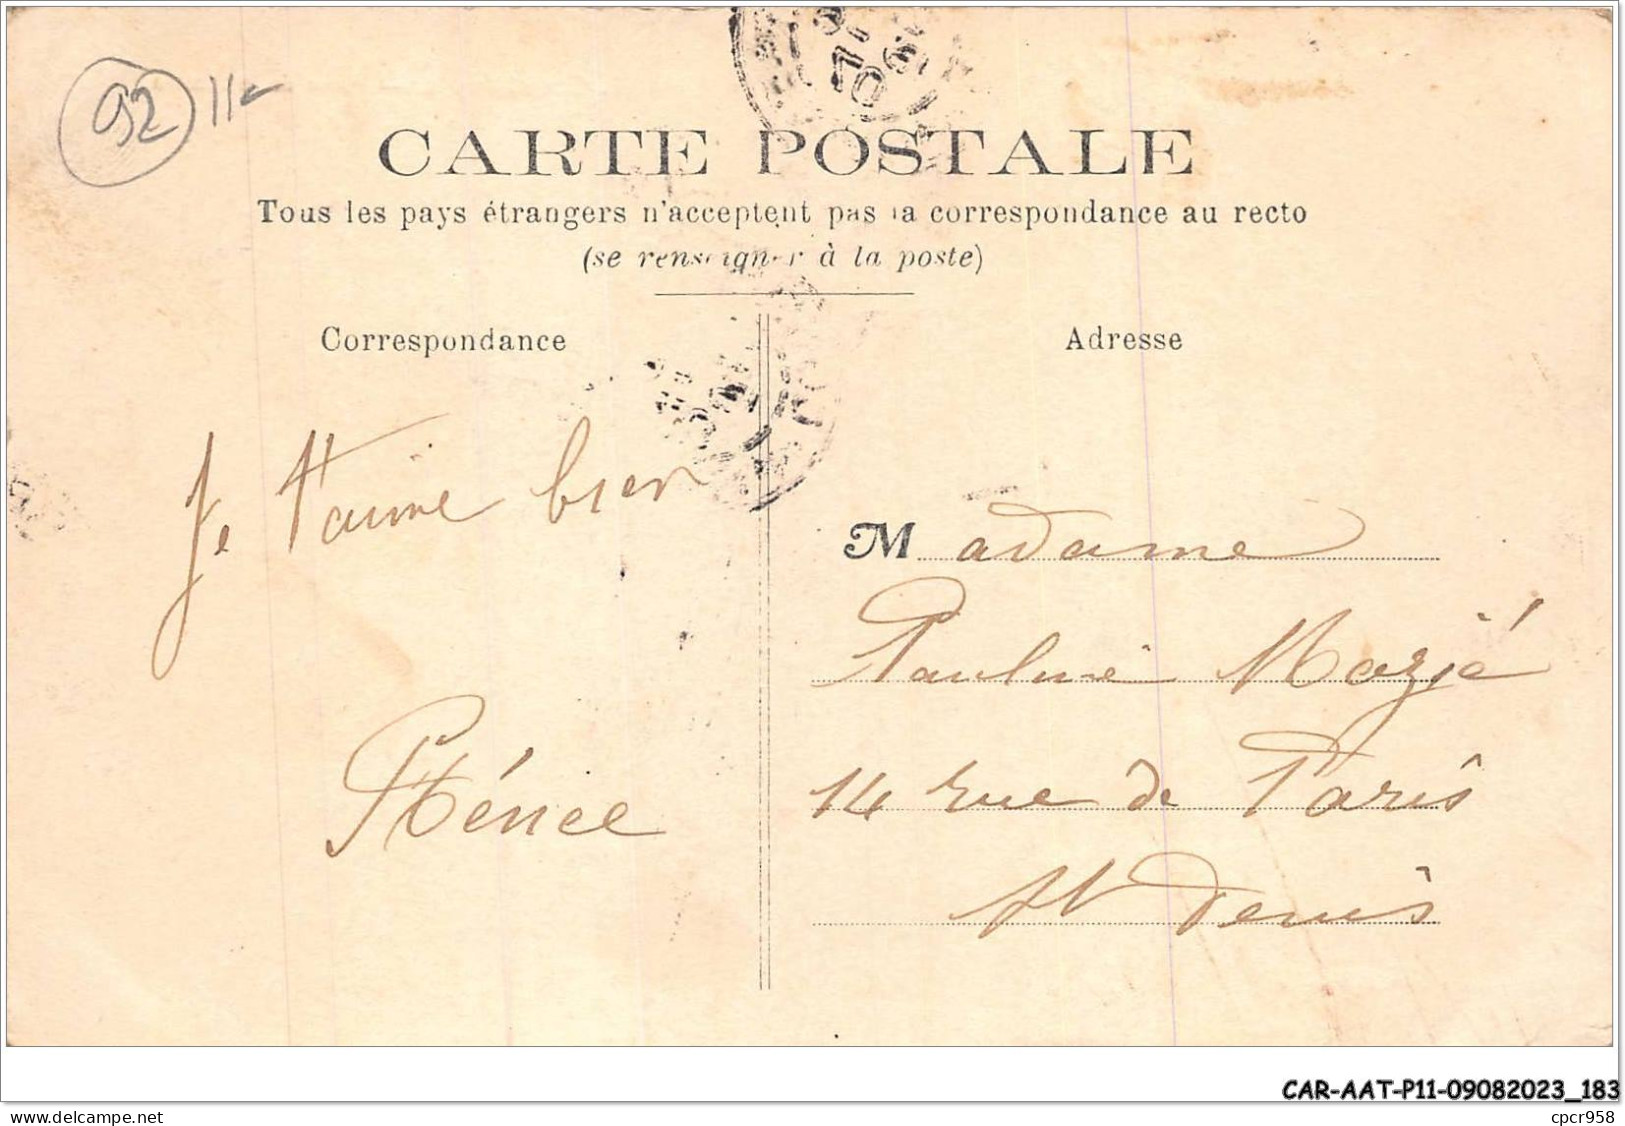 92 11e
CARTE POSTALE
Tous les pays étrangers n'acceptent pas la correspondance au recto
(se renseigner à la poste)
Correspondance
Adresse
Je t'aime bien
Rénée
Madame
Pauline
14 rue de Paris
St Denis
CAR-AAT-P11-09082023_183
Delcampe.net
cpcr958